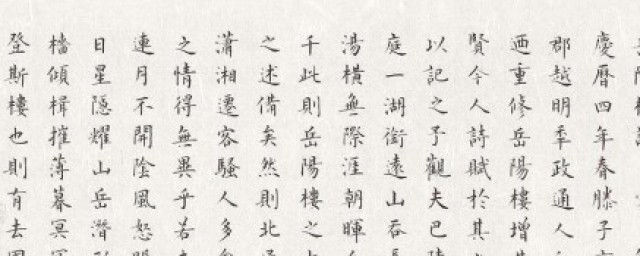 慶曆四年春滕子
郡越明季政通人
迺重修岳陽樓增其
賢今人詩賦於其
以記之予觀夫巴陵
庭一湖銜遠山吞長
湯橫無際涯朝暉
千此則岳陽樓之
之述備矣然則北
瀟湘遷客騷人多
之情得無異乎若
連月不開陰風怒
日星隱耀山岳潛形
檣傾楫摧薄暮冥冥
登斯樓也則有去國